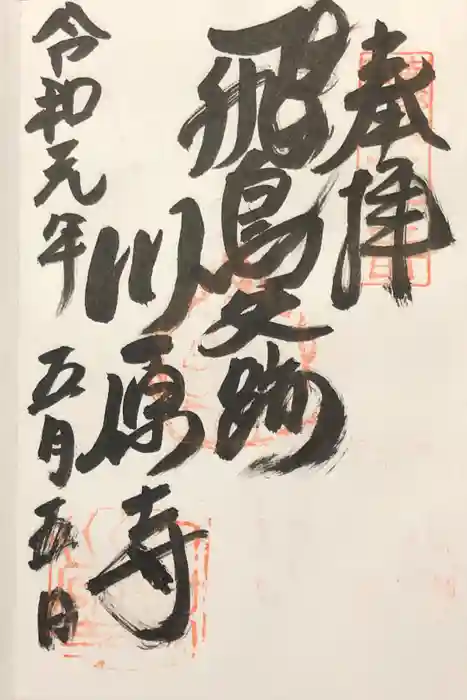 奉拝
飛鳥史跡
川原寺
令和元年五月五日